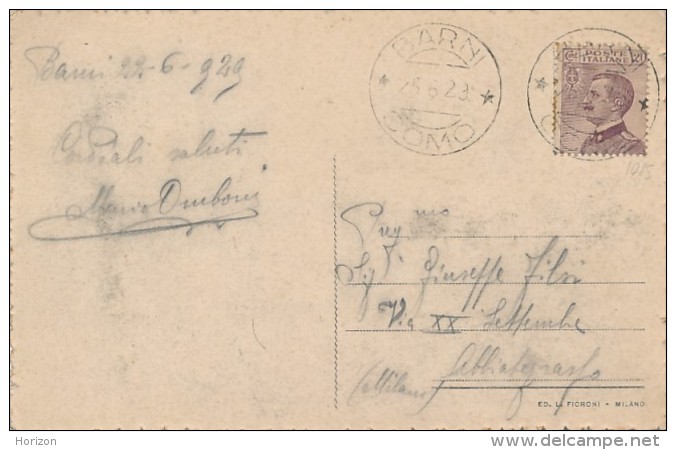 Barni 22-6-929
Cordiali saluti
Mario Omboni
BARNI
25.6.29
COMO
POSTE
ITALIANE
20
1015
Preg mo
Sig. Giuseppe Filsi
Via XX Settembre
Abbiategrasso
(Milano)
ED. L. FIORONI - MILANO
Horizon
www.delcampe.net